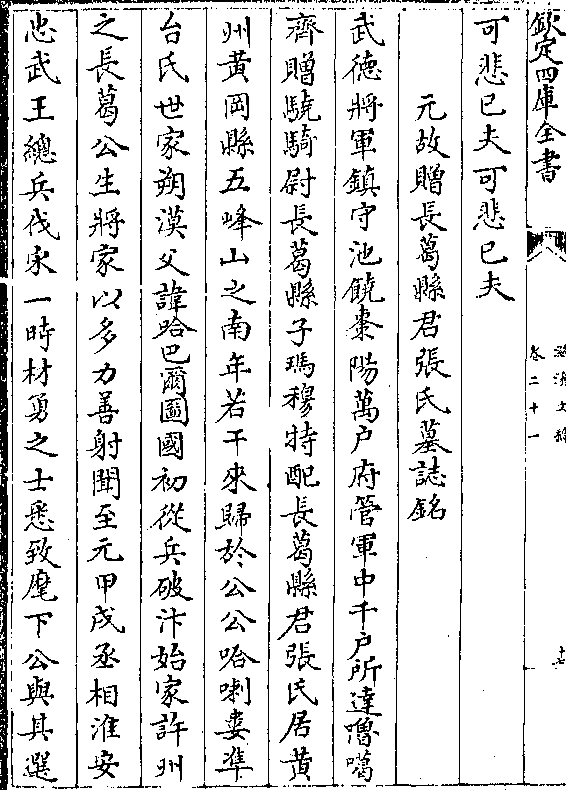 欽定四庫全書
卷二十一
可悲已夫可悲已夫
元故贈長葛縣君張氏墓誌銘
武德將軍鎮守池饒棗陽萬户府管軍中千户所達嚕噶
齊贈驍騎尉長葛縣子瑪穆特配長葛縣君張氏居黄
州黄岡縣五峰山之南年若干來歸於公公哈喇婁準
台氏世家朔漠父諱哈巴爾圖國初從兵破汴始家許州
之長葛公生將家以多力善射聞至元甲戌丞相淮安
忠武王總兵伐宋一時材勇之士悉致麾下公與其選